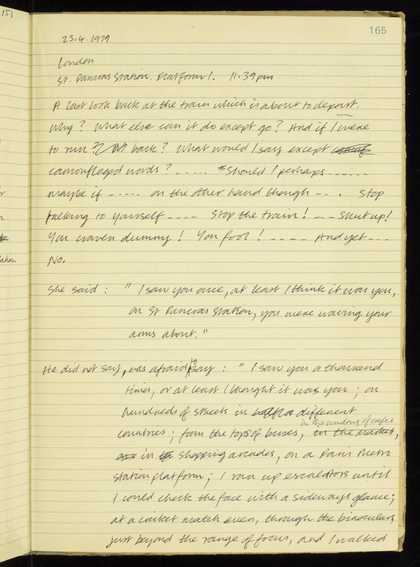 165
23.4.1979
London
St. Pancras Station. Platform 1. 11.39 pm
A last look back at the train which is about to depart.
Why? What else can it do except go? And if I were
to run back? What would I say except
camouflaged words? ..... Should I perhaps .....
maybe if ..... on the other hand though ... . Stop
talking to yourself .... Stop the train! ... Shut up!
You craven dummy! You fool! .... And yet ...
No.
She said : " I saw you once, at least I think it was you,
on St Pancras Station, you were waving your
arms about."
He did not say, was afraid to say : " I saw you a thousand
times, or at least I thought it was you ; on
hundreds of streets in a different
in the windows of cafes
countries ; from the tops of buses, in the market,
in shopping arcades, on a Paris Metro
station platform ; I ran up escalators until
I could check the face with a sideways glance ;
at a cricket match even, through the binoculars
just beyond the range of focus, and I walked